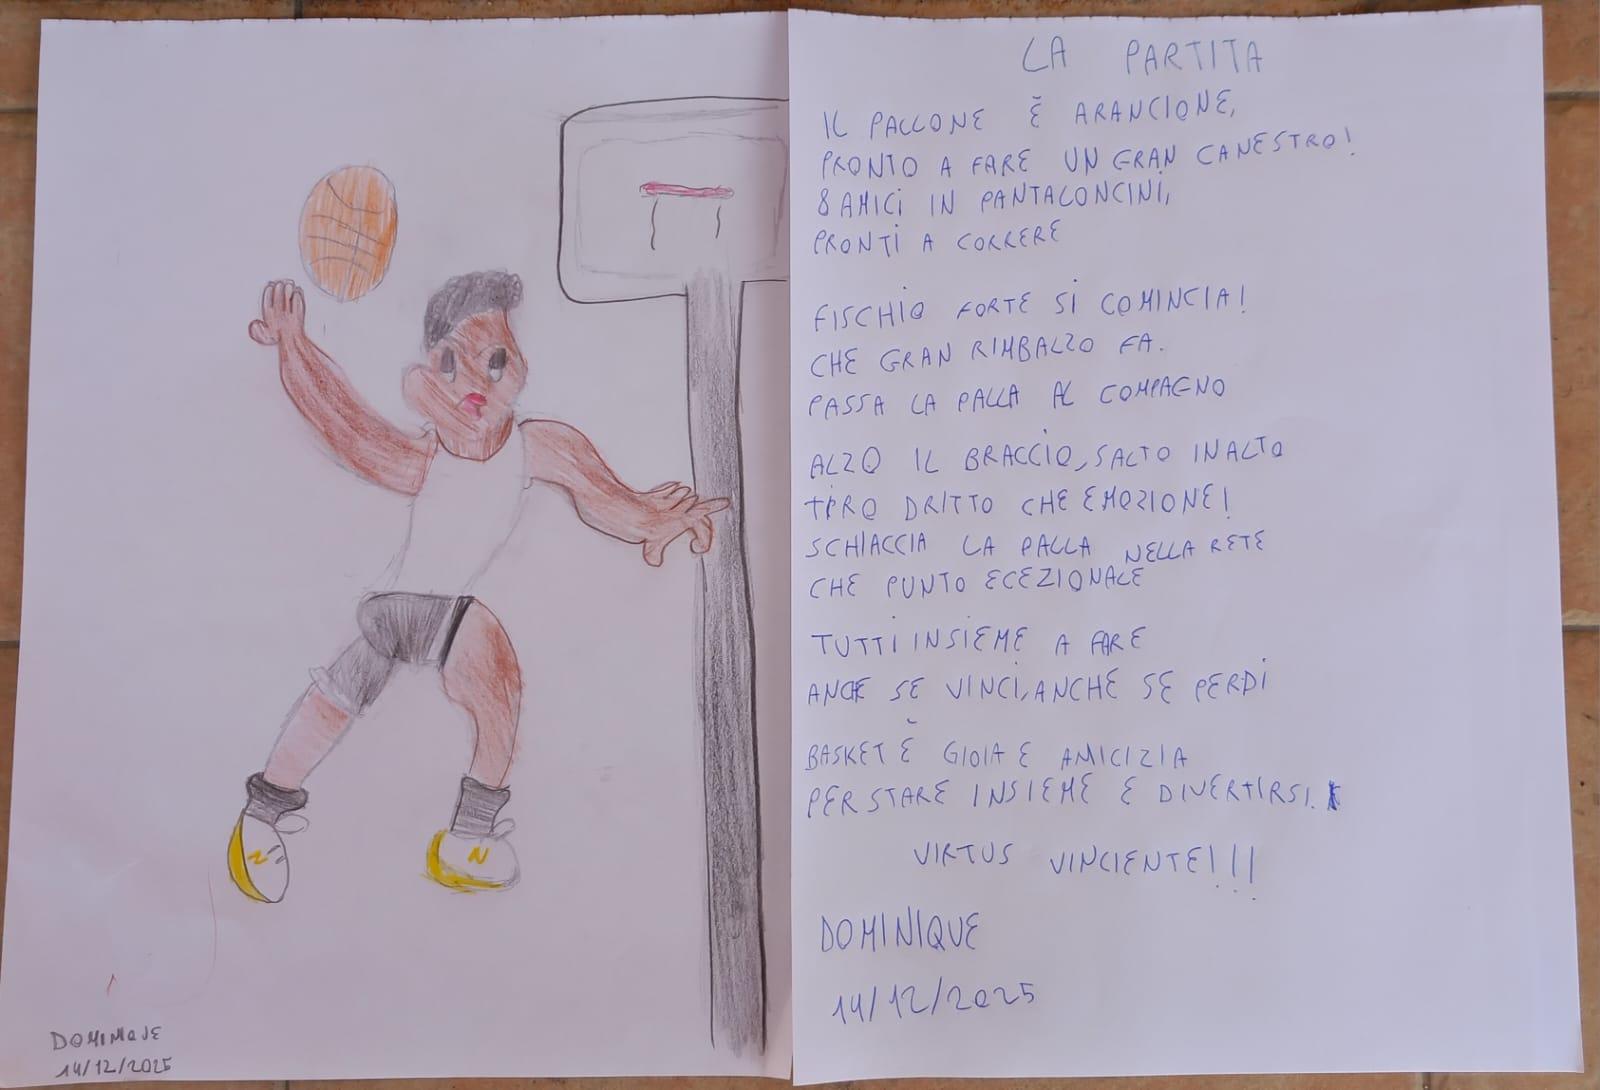 DOMINQUE
14/12/2025
LA PARTITA
IL PALLONE È ARANCIONE,
PRONTO A FARE UN GRAN CANESTRO!
8 AMICI IN PANTALONCINI,
PRONTI A CORRERE
FISCHIO FORTE SI COMINCIA!
CHE GRAN RIMBALZO FA.
PASSA LA PALLA AL COMPAGNO
ALZO IL BRACCIO, SALTO IN ALTO
TIRO DRITTO CHE EMOZIONE!
SCHIACCIA LA PALLA NELLA RETE
CHE PUNTO ECEZIONALE
TUTTI INSIEME A FARE
ANCHE SE VINCI, ANCHE SE PERDI
BASKET È GIOIA E AMICIZIA
PER STARE INSIEME E DIVERTIRSI.
VIRTUS VINCIENTE!!!
DOMINIQUE
14/12/2025